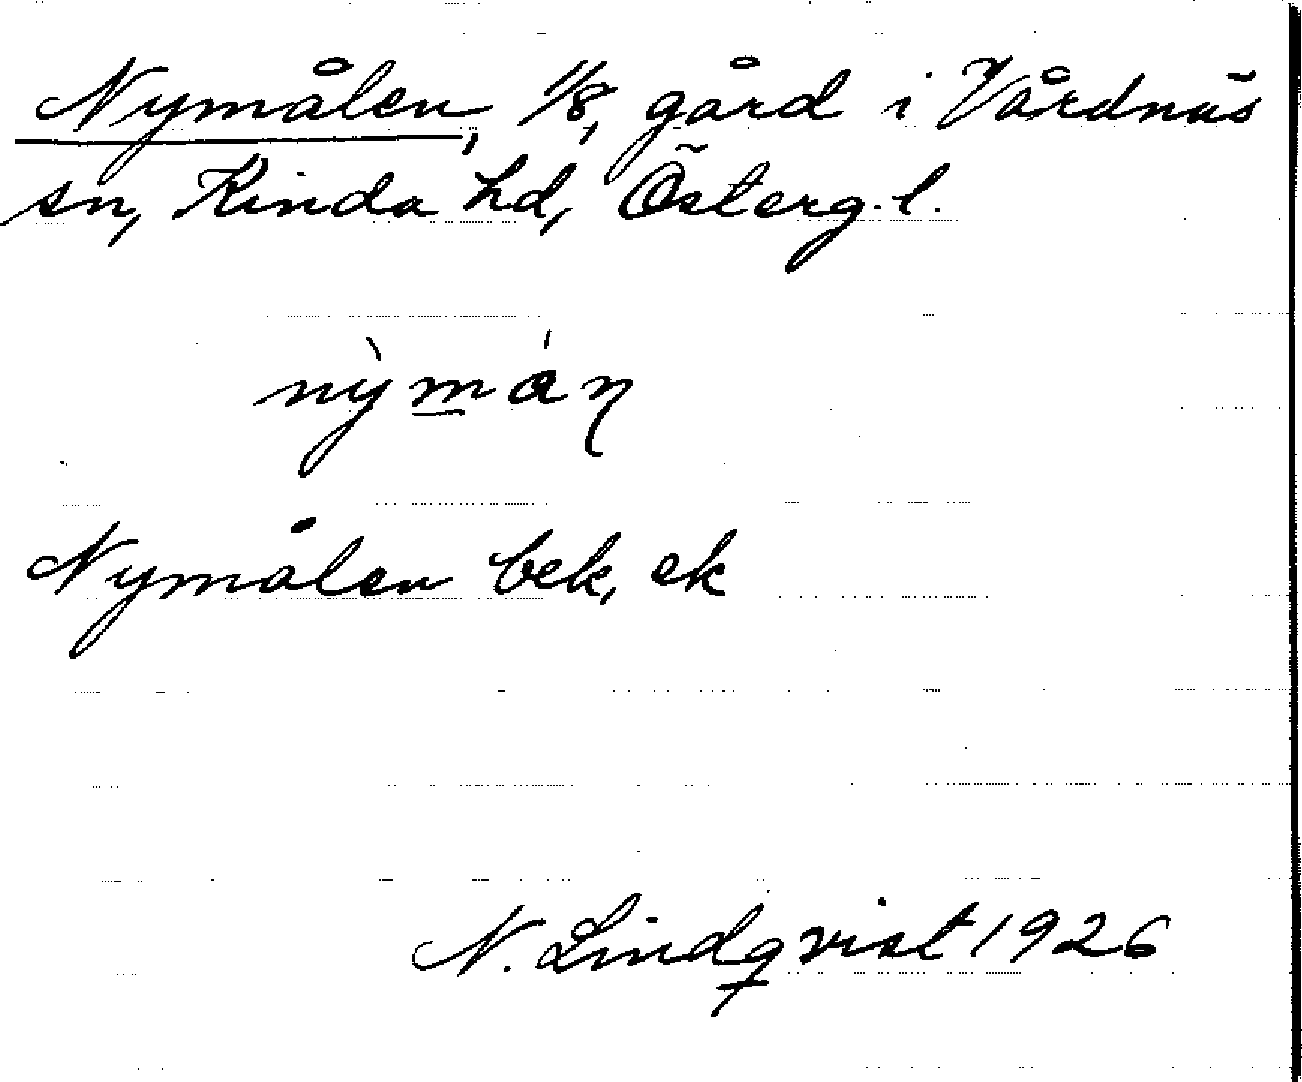 Nymålen, 1/8, gård i Vårdnäs
sn, Kinda hd, Österg. l.
nỳmáŋ
Nymålen bek, ek
N. Lindqvist 1926